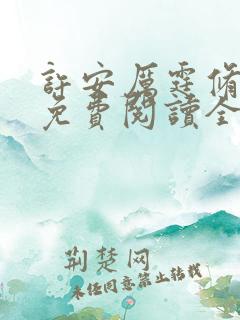 許安厲霆脩
免費閱讀全
荆楚网
未经同意禁止转载